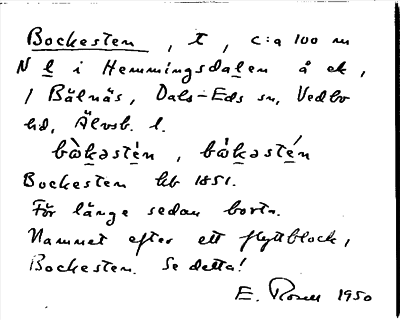 Bockesten, t, c:a 100 m
N l i Hemmingsdalen å ek,
/ Bälnäs, Dals-Eds sn, Vedbo
hd, Älvsb. l.
bɷ̀kəstén, bɷ́kəstén
Bockesten hb 1851.
För länge sedan borta.
Namnet efter ett flyttblock,
Bockesten. Se detta!
E. Rosell 1950